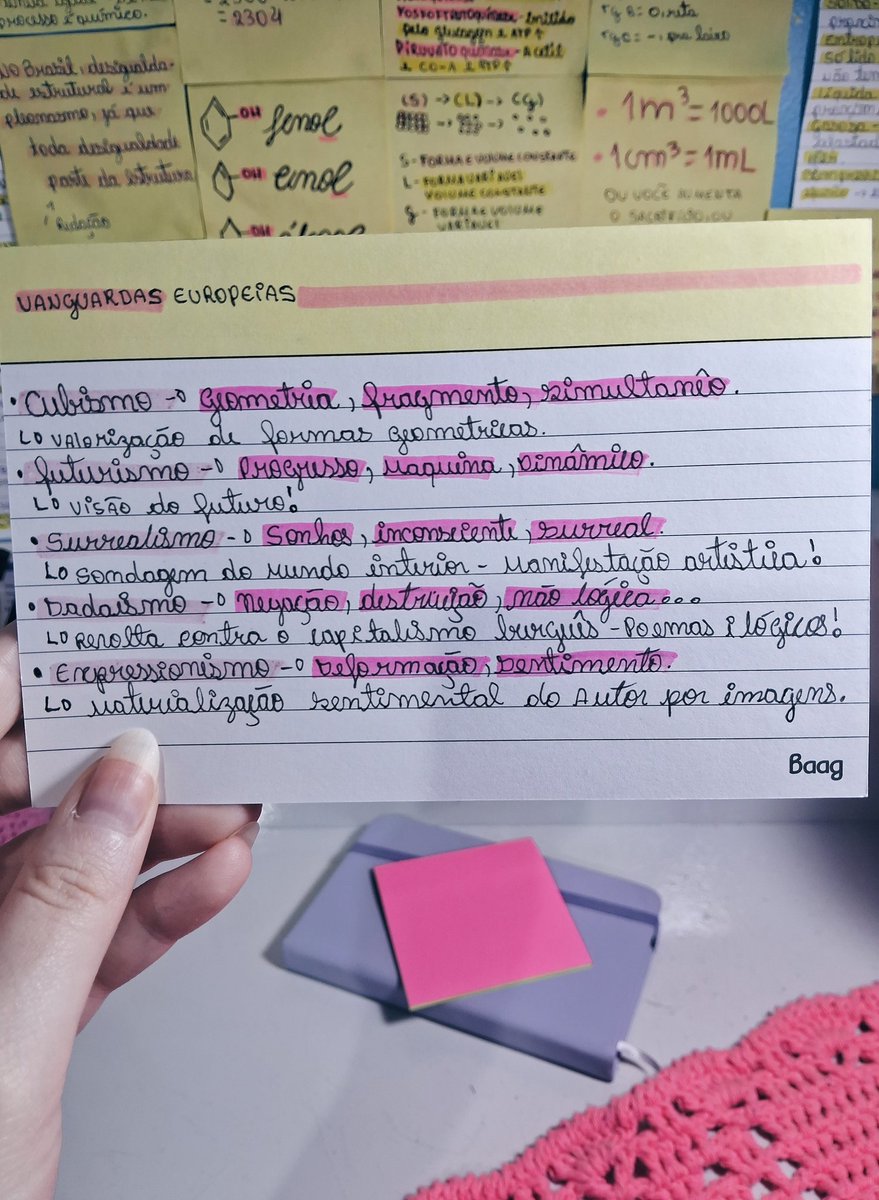 processo é químico.
No Brasil, desigualda-
de estrutural é um
pleonasmo, já que
toda desigualdade
parte da estrutura
Redação
= 2304
OH fenol
OH enol
OH
Fosfofrutoquinase - inibido
pelo glucagon e ATP↑
Piruvato quinase - Acetil
e CO-A e ATP↑
(S) → (L) → (g)
S - FORMA E VOLUME CONSTANTE
L - FORMA VARIÁVEL
VOLUME CONSTANTE
g - FORMA E VOLUME
VARIÁVEL
• 1m³ = 1000L
• 1cm³ = 1mL
OU VOCÊ AUMENTA
O SACRIFÍCIO, OU
VANGUARDAS EUROPEIAS
• Cubismo → Geometria, fragmento, simultanêo.
↳ Valorização de formas geometricas.
• futurismo → Progresso, Maquina, Dinâmico.
↳ Visão do futuro!
• Surrealismo → Sonhos, inconsciente, surreal.
↳ Sondagem do mundo interior - Manifestação artística!
• Dadaísmo → Negação, destruição, não lógica...
↳ Revolta contra o capitalismo burguês - Poemas ilógicos!
• Expressionismo → Deformação, Sentimento.
↳ Materialização sentimental do Autor por imagens.
Baag